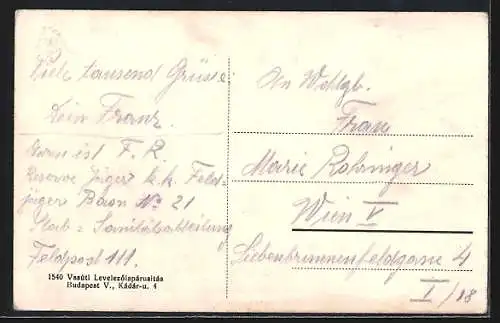 Viele tausend Grüsse
Dein Franz.
ist F. R.
Reserve Jäger k. k. Feld-
jäger Baon No 21
Stab = Sanitätsabteilung
Feldpost 111.
1540 Vasúti Levelezőlapárusitás
Budapest V., Kádár-u. 4
An Wohlgb.
Frau
Marie Rohringer
Wien V
Siebenbrunnenfeldgasse 4
I/18